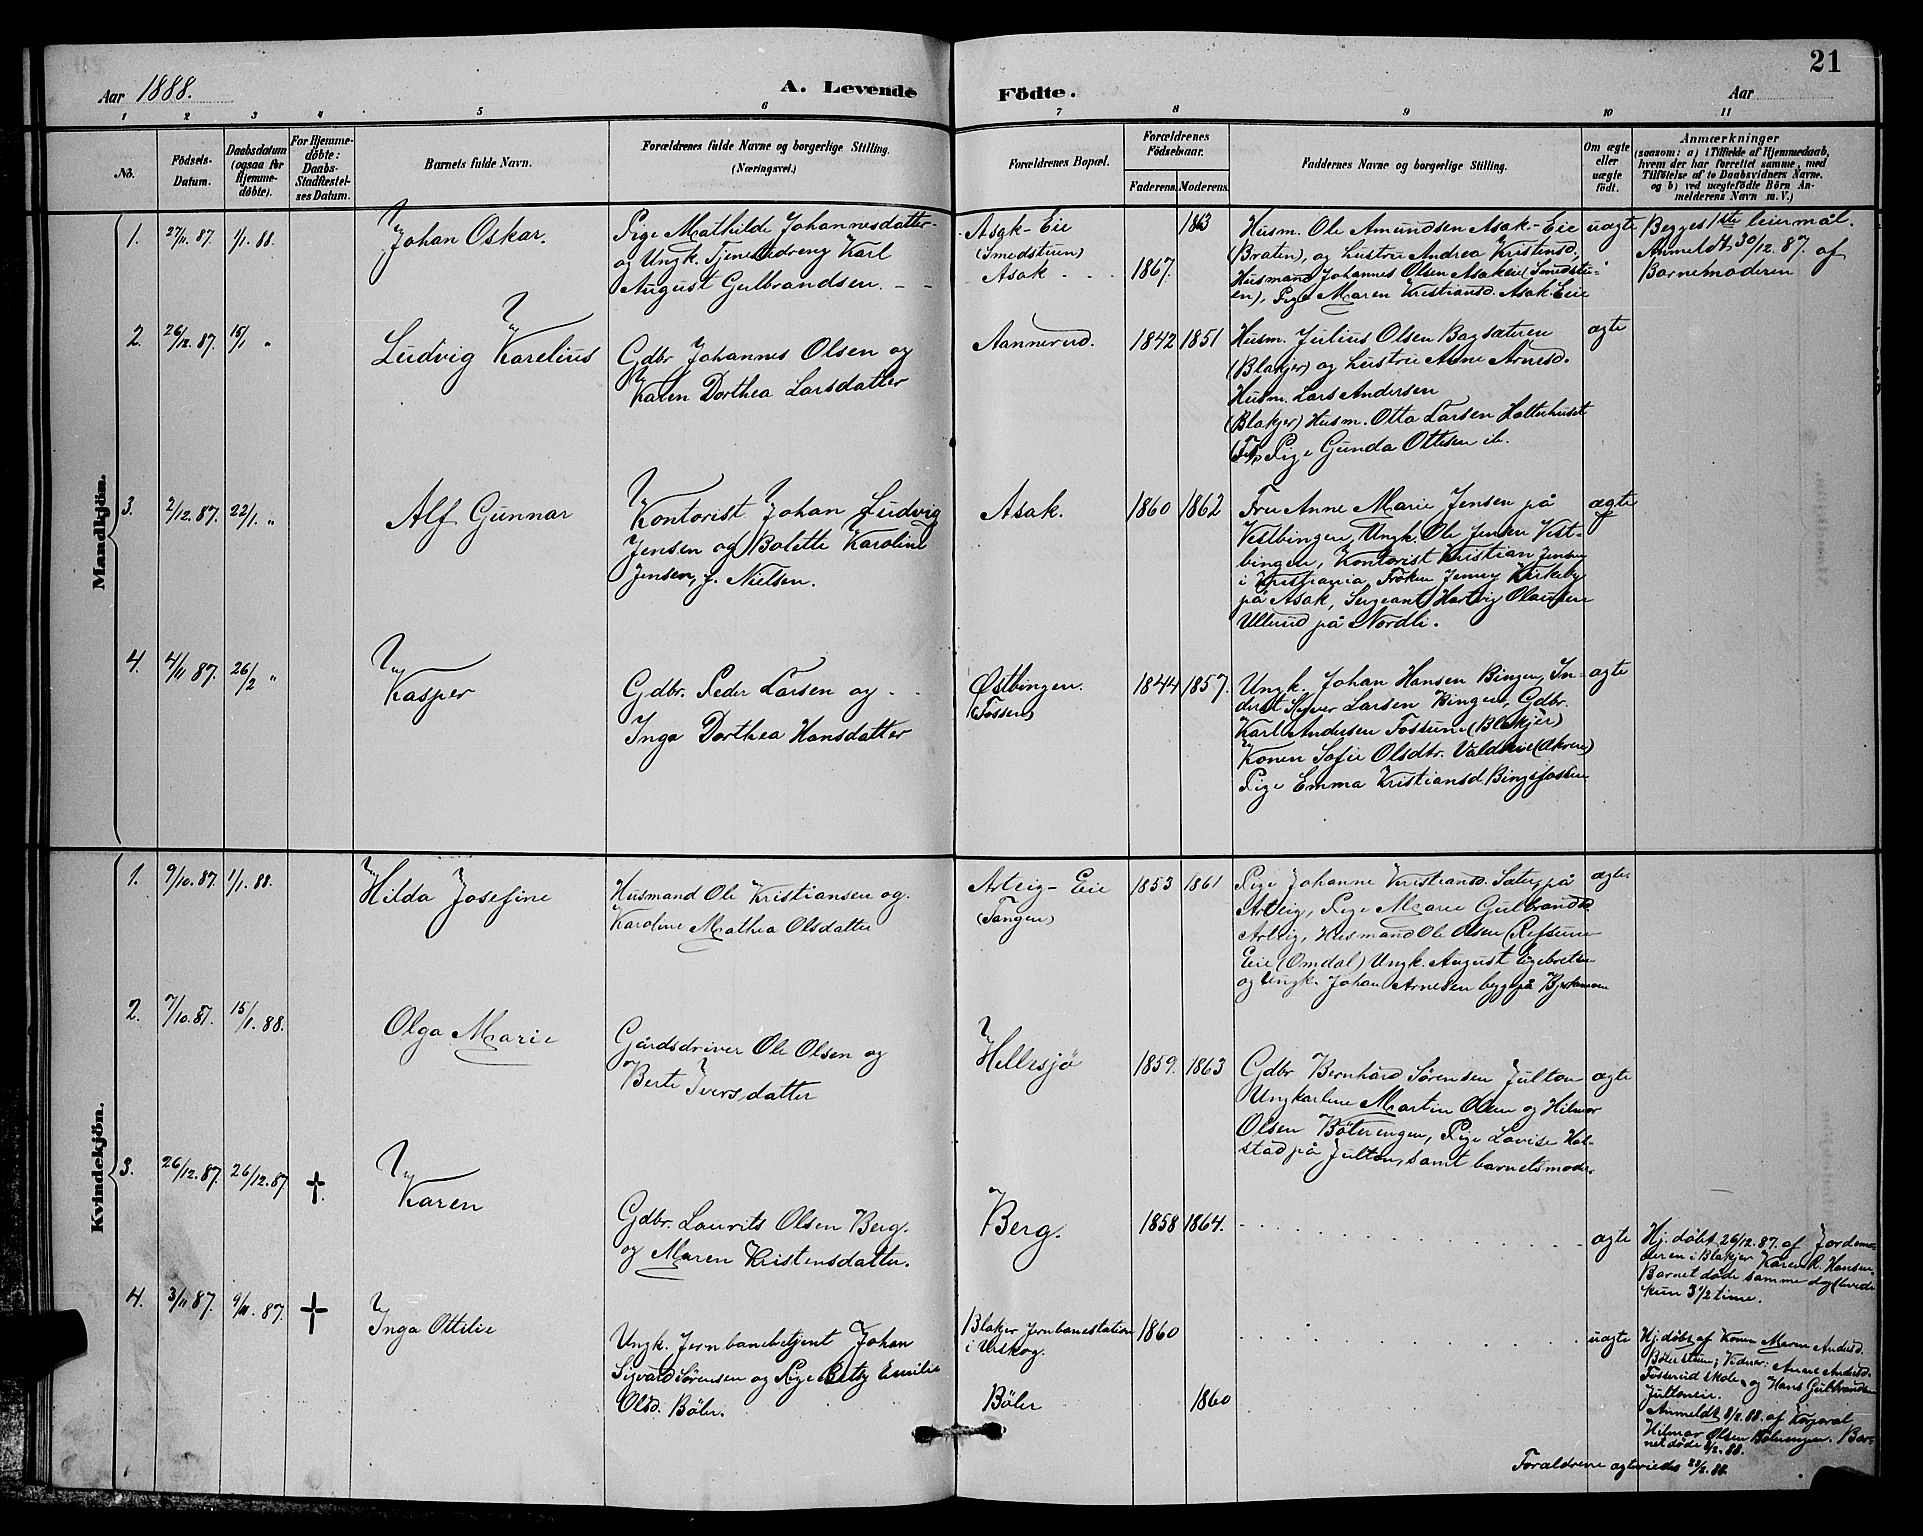 21
Aar 1888.
A. Levende Födte.
Aar
1 2 3 4 5 6 7 8 9 10 11
No.
Födsels-
Datum.
Daabsdatum
(ogsaa for
Hjemme-
döbte).
For Hjemme-
döbte:
Daabs-
Stadfæstel-
ses Datum.
Barnets fulde Navn.
Forældrenes fulde Navne og borgerlige Stilling.
(Næringsvei.)
Forældrenes Bopæl.
Forældrenes
Födselsaar.
Faderens. Moderens.
Faddernes Navne og borgerlige Stilling.
Om ægte
eller
uægte
födt.
Anmærkninger
(saasom: a) i Tilfælde af Hjemmedaab,
hvem der har forrettet samme, med
Tilföielse af to Daabsvidners Navne,
og b) ved uægtefödte Börn An-
melderens Navn m.V.)
Mandkjön.
1. 27/11. 87. 1/1. 88.
Johan Oskar.
Pige Mathilde Johannesdatter
og Ungk. Tjenestedreng Karl
August Gulbrandsen.
Asak-Eie
(Smedstuen)
Asak
1863
1867.
Husm. Ole Amundsen Asak-Eie
(Braten), og hustru Andrea Kristensd,
Husmand Johannes Olsen Asakeie (Smedstu-
en), Pige Maren Kristiansd. Asak-Eie
uægte
Begges 1ste leiermål.
Anmeldt 30/12. 87. af
Barnemoderen
2. 26/12. 87. 15/1 "
Ludvig Karelius
Gdbr. Johannes Olsen og
Karen Dorthea Larsdatter
Aannerud.
1842 1851
Husm. Julius Olsen Bagsæteren
(Blakjer) og hustru Anne Arnesd.
Husm. Lars Andersen
(Blakjer) Husm. Otto Larsen Holterhuset
Pige Gunda Ottesen ib.
ægte
3. 2/12. 87. 22/1. "
Alf Gunnar
Kontorist Johan Ludvig
Jensen og Bolette Karoline
Jensen, f. Nielsen.
Asak.
1860 1862
Fru Anne Marie Jensen på
Vestbingen, Ungk. Ole Jensen Vest-
bingen, Kontorist Kristian Jensen
i Kristiania, Fröken Jenny Kirkeby
på Asak, Sergeant Hartvig Olausen
Ullerud på Nordli.
ægte
4. 4/11 87. 26/2 "
Kasper
Gdbr. Peder Larsen og
Inga Dorthea Hansdatter
Østbingen.
(Fossen)
1844 1857.
Ungk. Johan Hansen Bingen, In-
derst Syver Larsen Bingen, Gdbr.
Karl Andersen Fossune (Blakjer)
Konen Sofie Olsdtr. Valdseie
Pige Emma Kristiansd. Bingsfossen
ægte
Kvindekjön.
1. 9/10. 87. 1/1. 88.
Hilda Josefine
Husmand Ole Kristiansen og
Karoline Mathea Olsdatter
Arteig-Eie
(Tangen)
1853 1861
Pige Johanne Kristiansd. Sæter på
Arteig, Pige Marie Gulbrandsd.
Arteig, Husmand Ole Olsen (Refsum
Eie (Omdal) Ungk. August Engebretsen
og Ungk. Johan Arnesen
ægte
2. 7/10. 87. 15/1. 88.
Olga Marie
Gårdsdriver Ole Olsen og
Berte Iversdatter
Hellesjö
1859. 1863
Gdbr Bernhard Sörensen Julton
Ungkarlene Martin Olsen og Hilmar
Olsen Bölerengen, Pige Lovise Hol-
stad på Julton, samt barnets moder.
ægte
3. 26/12. 87. 26/12. 87 †
Karen
Gdbr. Laurits Olsen Berg.
og Maren Kristensdatter.
Berg.
1858 1864.
ægte
Hj. döbt 26/12. 87. af Jordmo-
deren i Blakjer Karen K. Hansen.
Barnet döde samme dag levede
kun 3 1/2 time.
4. 3/11 87. 9/11. 87. †
Inga Ottilie
Ungk. Jernbanebetjent Johan
Sigvald Sörensen og Pige Betsy Emilie
Olsd. Böler.
Blakjer Jernbanestation
i Urskog.
Böler
1860
1860
uægte
Hj. döbt af Konen Maren Andersd.
Bölerstuen; Vidner: Anne Andersd.
Fosserud skole, og Hans Gulbrandsen
Jultoneie.
Anmeldt 8/2. 88. af Korporal
Hilmar Olsen Bölerengen. Bar-
net döde 8/2. 88.
Foraldrene agteviede 23/3. 88.